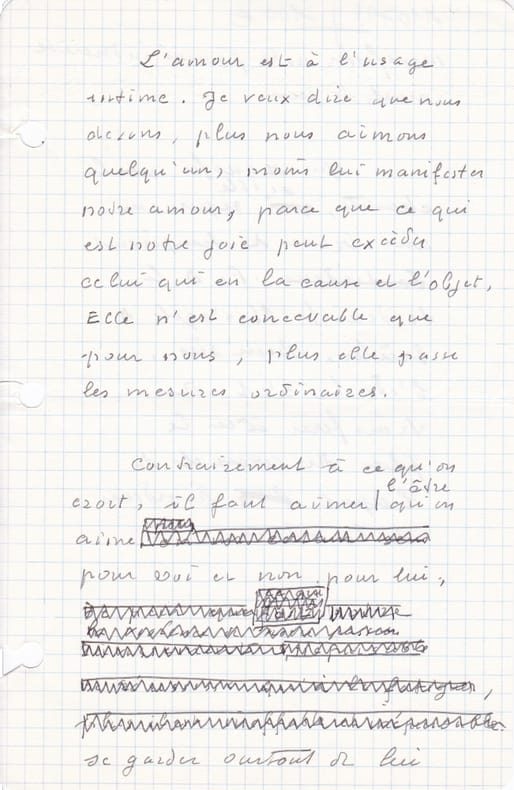 L'amour est à l'usage
intime. Je veux dire que nous
devons, plus nous aimons
quelqu'un, moins lui manifester
notre amour, parce que ce qui
est notre joie peut excéder
celui qui en la cause et l'objet,
Elle n'est concevable que
pour nous, plus elle passe
les mesures ordinaires.
Contrairement à ce qu'on
croit, il faut aimer l'être qu'on
aime
pour soi et non pour lui,
se garder surtout de lui